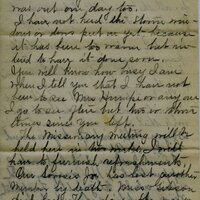 was out one day too.
I have not had the storm win
dows or doors put on yet because
it has been so warm but in
tend to have it done soon.
You will know how busy I am
when I tell you that I have not
been to see Mrs. or any one
I go to see but two or three
times since you left.
The Missionary meeting will be
held here in two weeks & I will
have to furnish refreshments.
Our has lost another
member by death. Mrs. Gibson